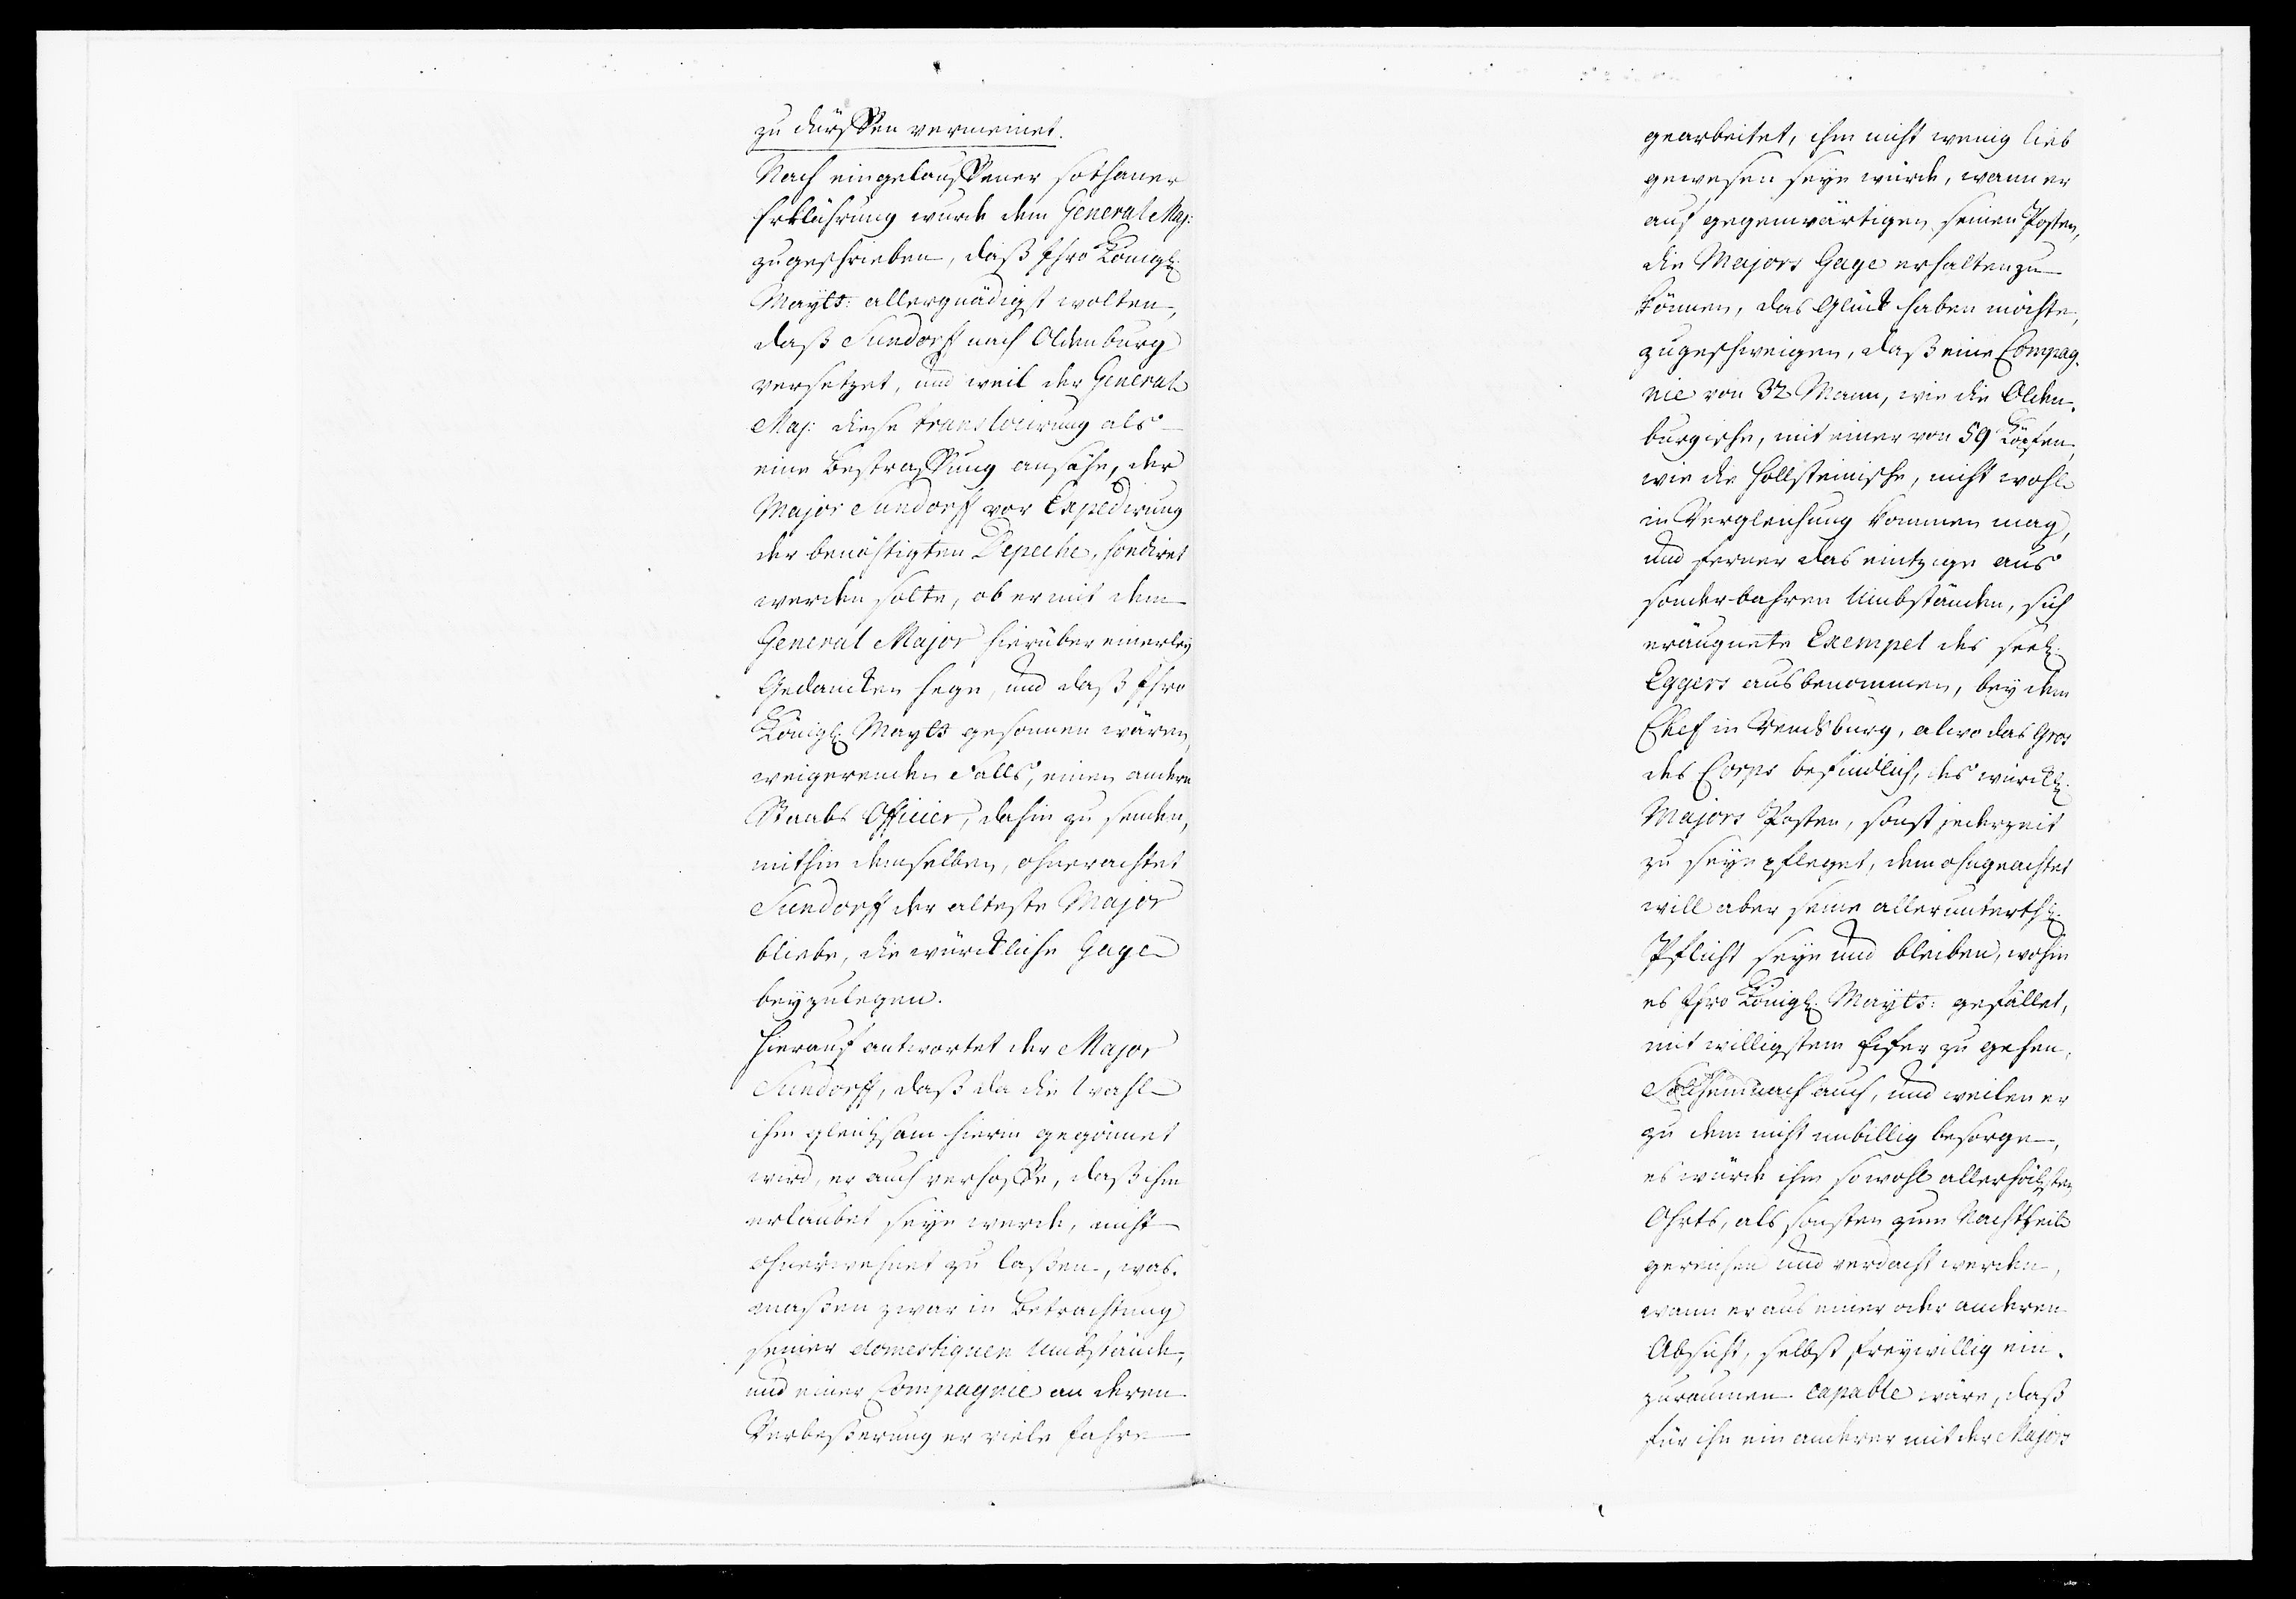 zu dürffen vermeinet.
Nach eingelauffener sothaner
Erklährung wurde dem General Maj:
zugeschrieben, daß Ihro Königl:
Mayts: allergnädigst wolten,
daß Sundorff nach Oldenburg
versetzet, und weil der General
Maj: diese translocirung als
eine Bestraffung ansähe, der
Major Sundorff vor Expedirung
der benöthigten Depeche, sondiret
werden solte, ob er mit dem
General Major hierüber einerley
Gedancken hege, und daß Ihro
Königl: Mayts gesonnen wären,
weigerenden Falls, einen andern
Staabs Officier, dahin zu senden,
mithin demselben, ohnerachtet
Sundorff der älteste Major
bliebe, die würckliche Gage
beyzulegen.
Hierauf antwortet der Major
Sundorff, daß da die Wahl
ihm gleichsam hierin gegönnet
wird, er auch verhoffe, daß ihm
erlaubet seyn werde, nicht
ohnerwehnet zu laßen, was-
maßen zwar in Betrachtung
seiner domestiquen Umbstände,
und einer Compagnie an deren
Verbeßerung er viele Jahre
gearbeitet, ihm nicht wenig lieb
gewesen seyn würde, wann er
auf gegenwärtigen seinen Posten,
die Majors Gage erhalten zu
können, das Glück haben möchte,
zugeschweigen, daß eine Compag-
nie von 32 Mann, wie die Olden-
burgische, mit einer von 59 Köpfen,
wie die Hollsteinische, nicht wohl
in Vergleichung kommen mag,
und ferner das eintzige aus
sonderbahren Umbständen, sich
eräugnete Exempel des seel:
Eggers ausbenommen, bey dem
Chef in Rendsburg, alwo das Gros
des Corps befindlich, des würckl:
Majors Posten, sonst jederzeit
zu seyn pfleget, dem ohngeachtet
will aber seine allerunterth:
Pflicht seyn und bleiben, wohin
es Ihro Königl: Mayts: gefället,
mit willigstem Eifer zu gehen,
Solchemnach auch, und weilen er
zu dem nicht unbillig besorge,
es würde ihm sowohl allerhöchsten
Ohrts, als sonsten zum Nachtheil
gereichen und verdacht werden,
wann er aus einer oder anderen
Absicht, selbst freywillig ein-
zuräumen capable wäre, daß
für ihn ein anderer mit der Majors